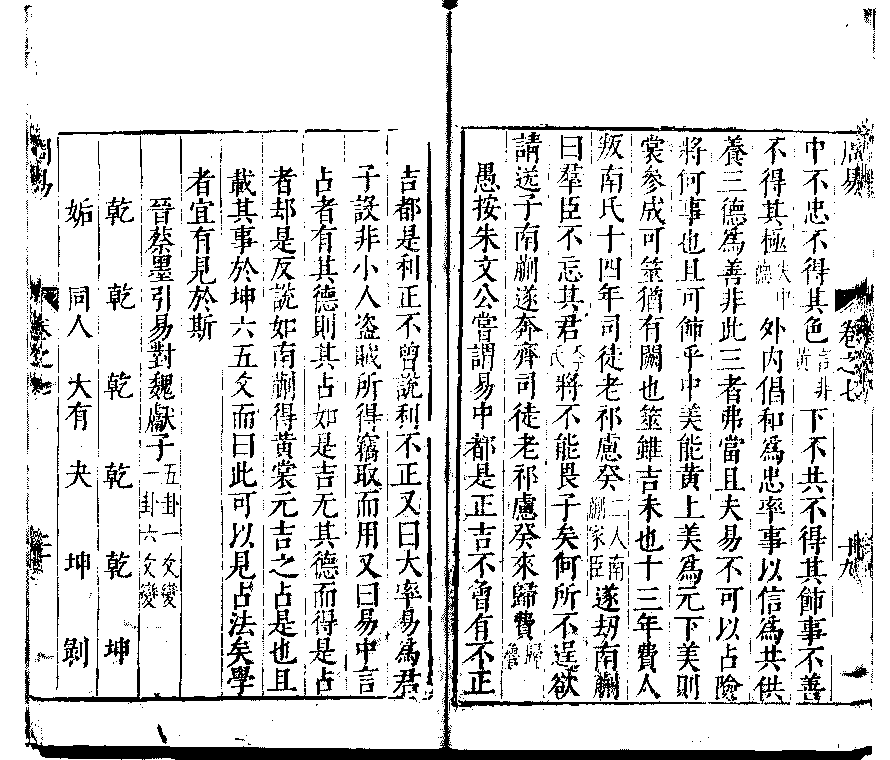 周易 卷之七 十九
中不忠不得其色言非黃下不共不得其飾事不善
不得其極失中德外內倡和為忠率事以信為共供
養三德為善非此三者弗當且夫易不可以占險
將何事也且可飾乎中美能黃上美為元下美則
裳參成可筮猶有闕也筮雖吉未也十三年費人
叛南氏十四年司徒老祁慮癸二人南蒯家臣遂刼南蒯
曰羣臣不忘其君季氏將不能畏子矣何所不逞欲
請送子南蒯遂奔齊司徒老祁慮癸來歸費歸魯
愚按朱文公嘗謂易中都是正吉不曾有不正
吉都是利正不曾說利不正又曰大率易為君
子設非小人盗賊所得竊取而用又曰易中言
占者有其德則其占如是吉无其德而得是占
者却是反說如南蒯得黃裳元吉之占是也且
載其事於坤六五爻而曰此可以見占法矣學
者宜有見於斯
晉蔡墨引易對魏獻子五卦一爻變一卦六爻變
乾 乾 乾 乾 乾 坤
姤 同人 大有 夬 坤 剝
周易 卷之七